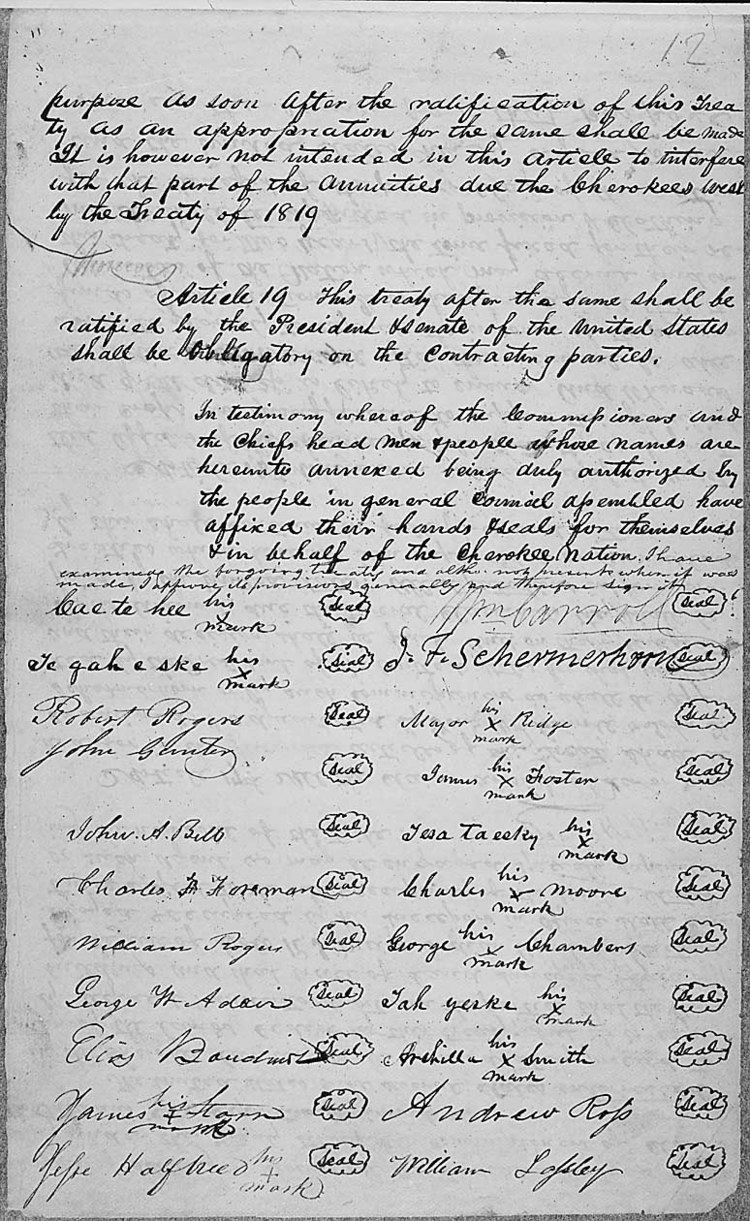 12
purpose as soon after the ratification of this Trea
ty as an appropriation for the same shall be made
It is however not intended in this article to interfere
with that part of the annuities due the Cherokees west
by the Treaty of 1819
Article 19 This treaty after the same shall be
ratified by the President & senate of the United States
shall be Obligatory on the contracting parties.
In testimony whereof the Commissioners and
the Chiefs head men & people whose names are
hereunto annexed being duly authorized by
the people in general council assembled have
affixed their hands & seals for themselves
& in behalf of the Cherokee Nation. I have
examined the forgoing treaty, and altho. not present when it was
made, I approve its provisions generally and therefore sign it.
Cae te hee his x mark Seal Wm Carroll Seal
Te gah e ske his x mark Seal J. F. Schermerhorn Seal
Robert Rogers Seal Major his x mark Ridge Seal
John Gunter Seal James his x mark Foster Seal
John. A. Bell Seal Tesa taesky his x mark Seal
Charles F. Foreman Seal Charles his x mark Moore Seal
William Rogers Seal George his x mark Chambers Seal
George W Adair Seal Tah yeske his x mark Seal
Elias Boudinot Seal Archilla his x mark Smith Seal
James his x mark Starr Seal Andrew Ross Seal
Jesse Halfbreed his x mark Seal William Lassley Seal